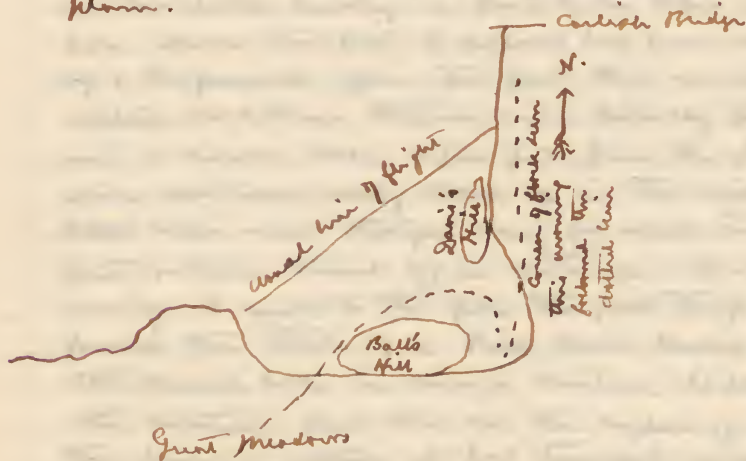 plain.
Carlisle Bridge
N.
Usual line of flight
Davis's
Hill
Course of flock seen
this morning
followed this
dotted line
Ball's
Hill
Great Meadows